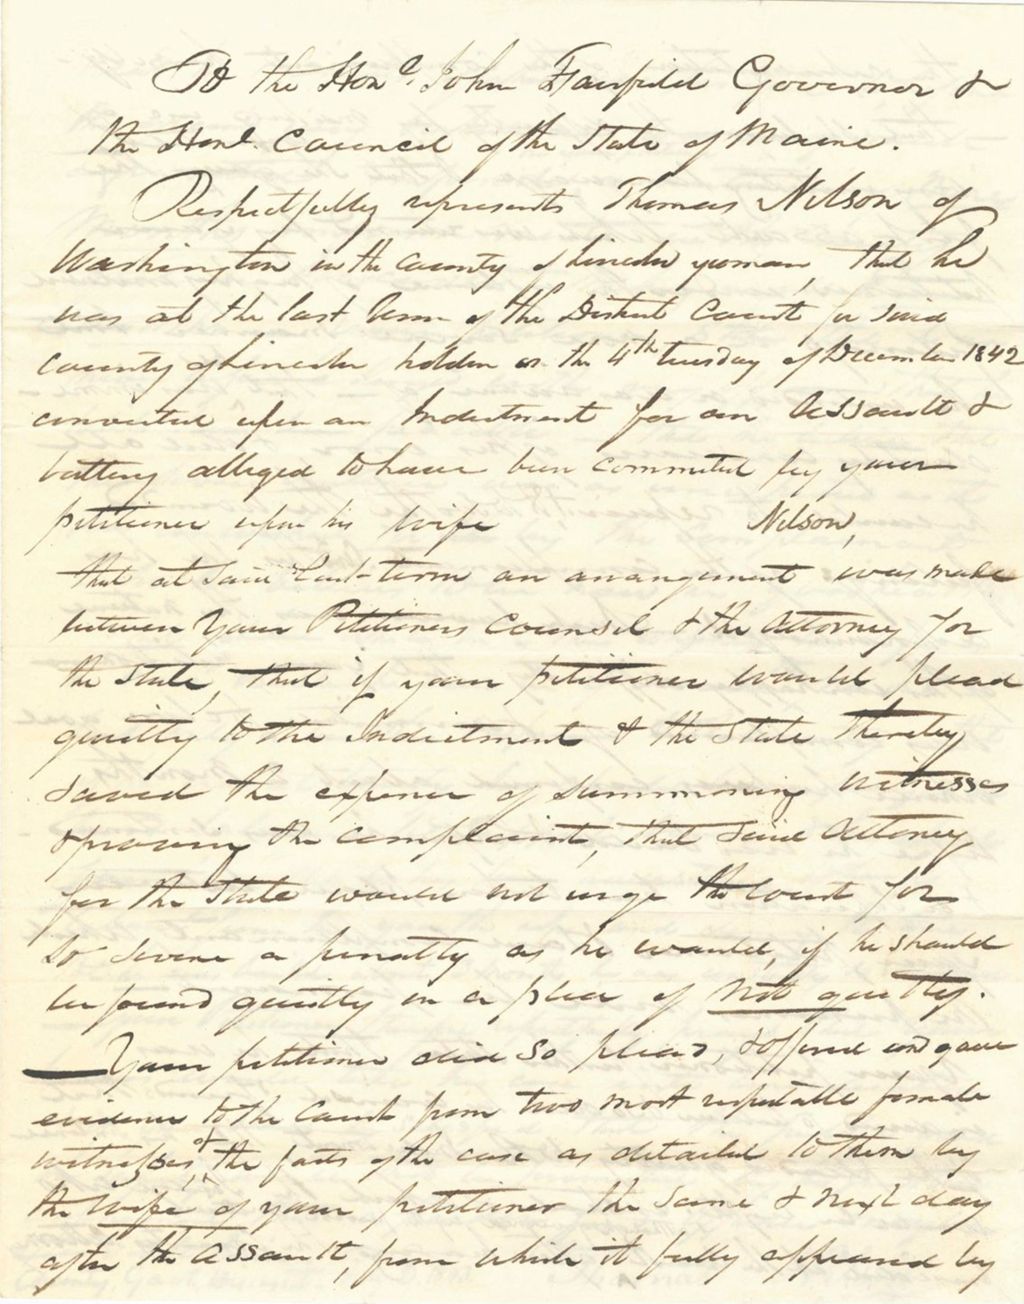 To the Hone. John Fairfield Governor &
the Honl. Council of the State of Maine.
Respectfully represents Thomas Nelson of
Washington in the County of Lincoln yeoman, that he
was at the last term of the District Court for said
County of Lincoln holden on the 4th tuesday of December 1842
convicted upon an Indictment for an assault &
battery alledged to have been commited by your
petitioner upon his wife Nelson,
that at said Court term an arrangement was made
between your Petitioners Counsel & the Attorney for
the State, that if your petitioner would plead
guilty to the Indictment & the State thereby
saved the expence of summoning witnesses
& proving the complaint, that said Attorney
for the State would not urge the Court for
so severe a penalty as he would, if he should
be found guilty on a plea of not guilty.
Your petitioner did so plead, & offered and gave
evidence to the Court from two most respectable female
witnesses, of the facts of the case as detailed to them by
the wife of your petitioner the same & next day
after the assault, from which it fully appeared by